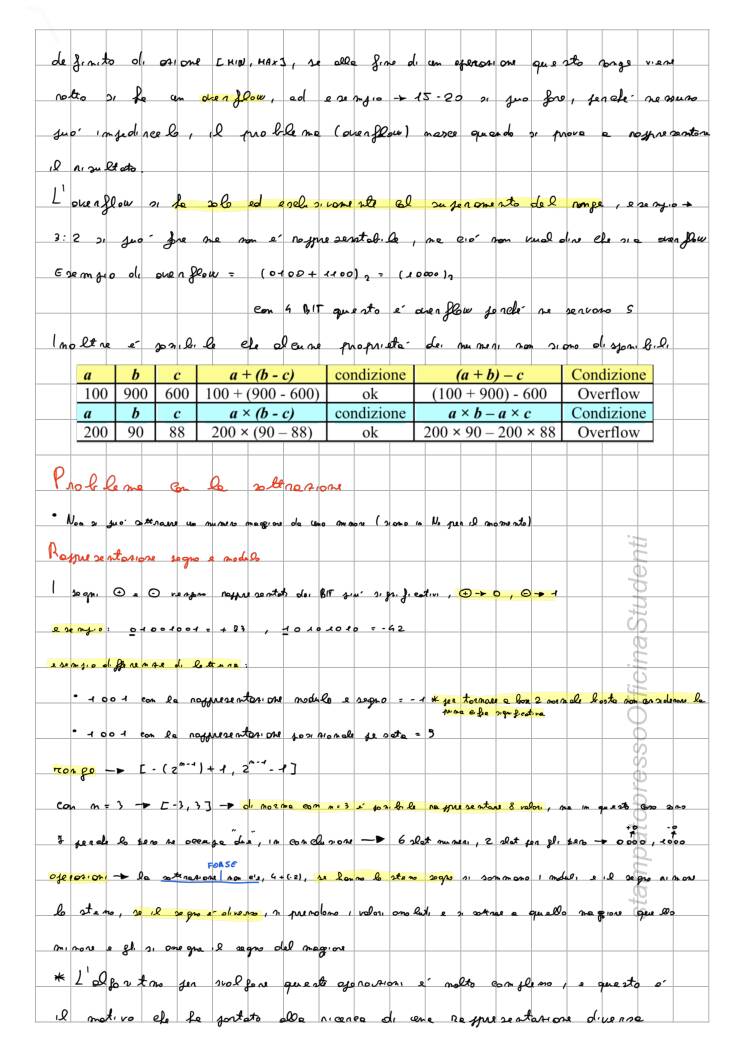 definito di azione [MIN, MAX], se alla fine di un operazione questo range viene
rotto si ha un overflow, ad esempio → 15-20 si può fare, perché nessuno
può impedircelo, il problema (overflow) nasce quando si prova a rappresentare
il risultato.
L'overflow si ha solo ed esclusivamente al superamento del range, esempio →
3:2 si può fare ma non è rappresentabile, ma ciò non vuol dire che sia overflow
Esempio di overflow = (0100 + 1100)₂ = (10000)₂
con 4 BIT questo è overflow perché ne servono 5
Inoltre è possibile che alcune proprietà dei numeri non siano disponibili
a b c a + (b - c) condizione (a + b) – c Condizione
100 900 600 100 + (900 - 600) ok (100 + 900) - 600 Overflow
a b c a × (b - c) condizione a × b – a × c Condizione
200 90 88 200 × (90 – 88) ok 200 × 90 – 200 × 88 Overflow
Problema con la sottrazione
• Non si può sottrarre un numero maggiore da uno minore (siamo in N₀ per il momento)
Rappresentazione segno e modulo
I segni ⊕ e ⊖ vengono rappresentati dai BIT più significativi, ⊕→ 0, ⊖→ 1
esempio: 01001001 = +73, 10101010 = -42
esempio differenze di lettura:
• 1001 con la rappresentazione modulo e segno = -1 * per tornare a base 2 normale basta non considerare la
prima cifra significativa
• 1001 con la rappresentazione posizionale pesata = 9
range → [-(2ⁿ⁻¹)+1, 2ⁿ⁻¹-1]
con n = 3 → [-3, 3] → di norma con n=3 è possibile rappresentare 8 valori, ma in questo caso sono
7 perché lo zero ne occupa "due", in conclusione → 6 slot numeri, 2 slot per gli zero → 0000, 1000
+0 -0
FORSE
operazioni → la sottrazione non c'è, 4+(-2), se hanno lo stesso segno si sommano i moduli e il segno rimane
lo stesso, se il segno è diverso, si prendono i valori assoluti e si sottrae a quello maggiore quello
minore e gli si assegna il segno del maggiore
* L'algoritmo per svolgere queste operazioni è molto complesso, e questo è
il motivo che ha portato alla ricerca di una rappresentazione diversa
stanpatopressoOfficinaStudenti